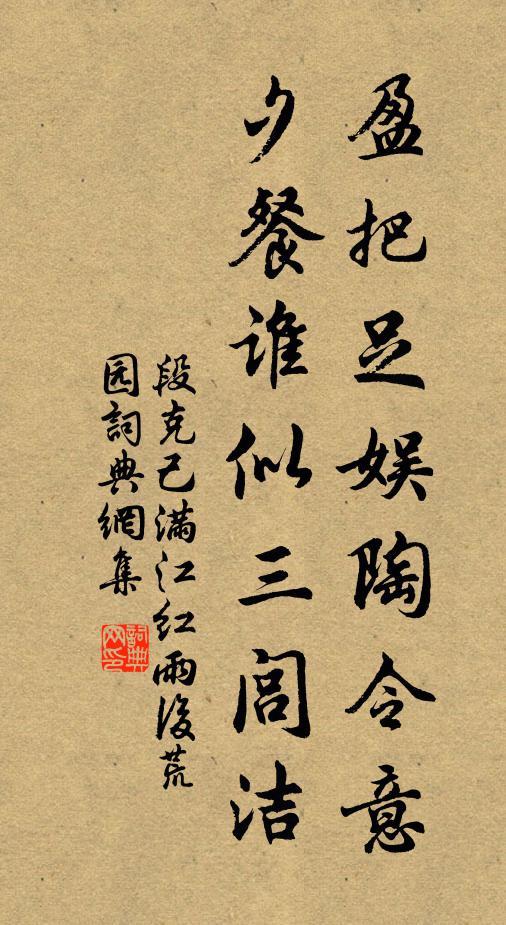 盈把足娱陶令意
夕餐谁似三闾洁
段克己满江红雨後荒
园詞典網集
詞典网印